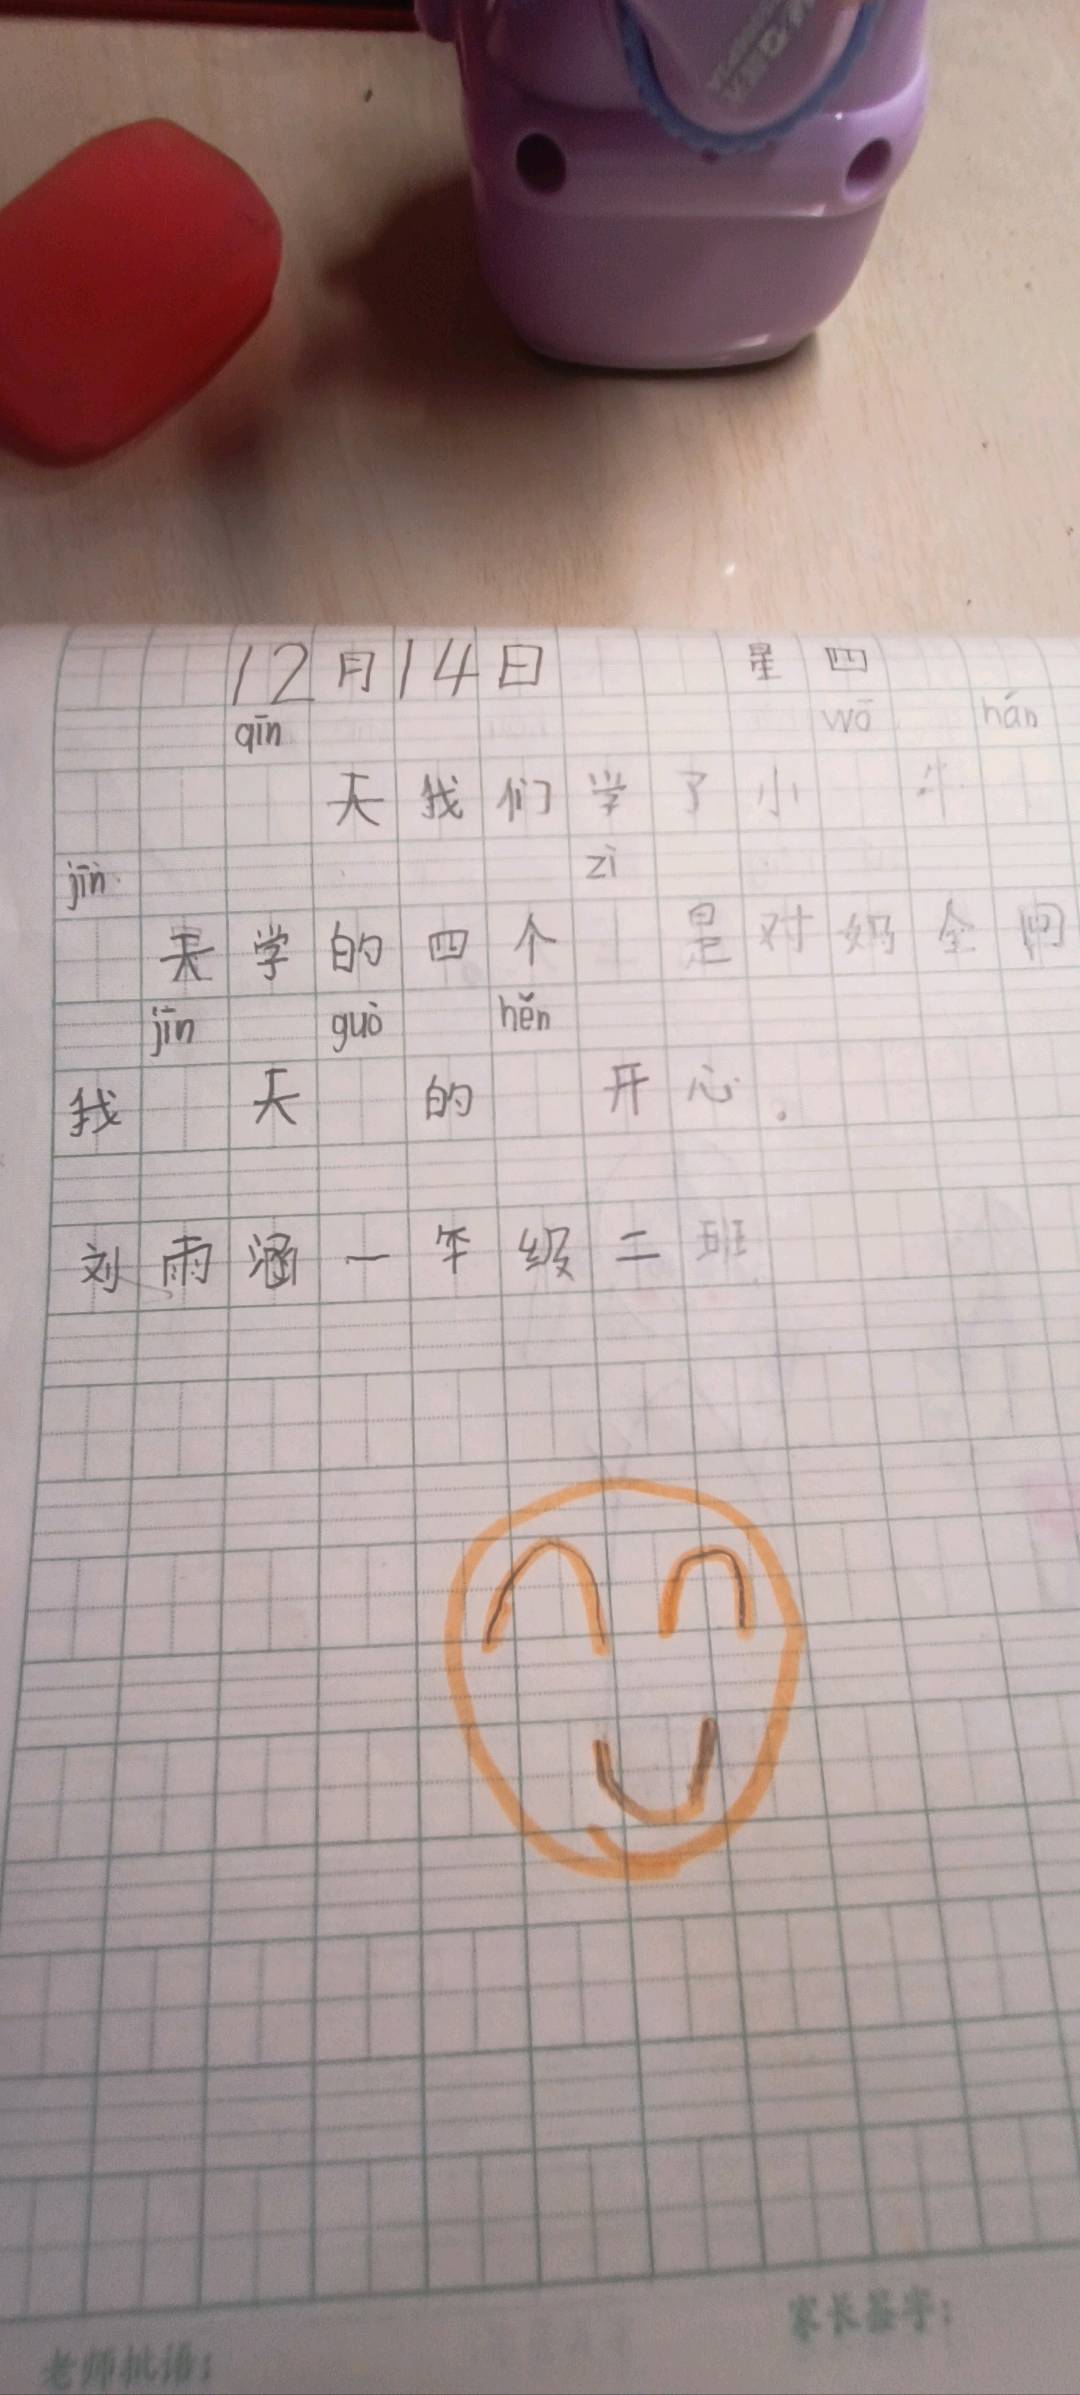 12月14日 星 四
qīn wō hán
天 我 们 学 了 小 牛
jīn zì
天 学 的 四 个 是 对 妈 全 问
jīn guò hěn
我 天 的 开 心 。
刘 雨 涵 一 年 级 二 班
家长签字：
老师批语：